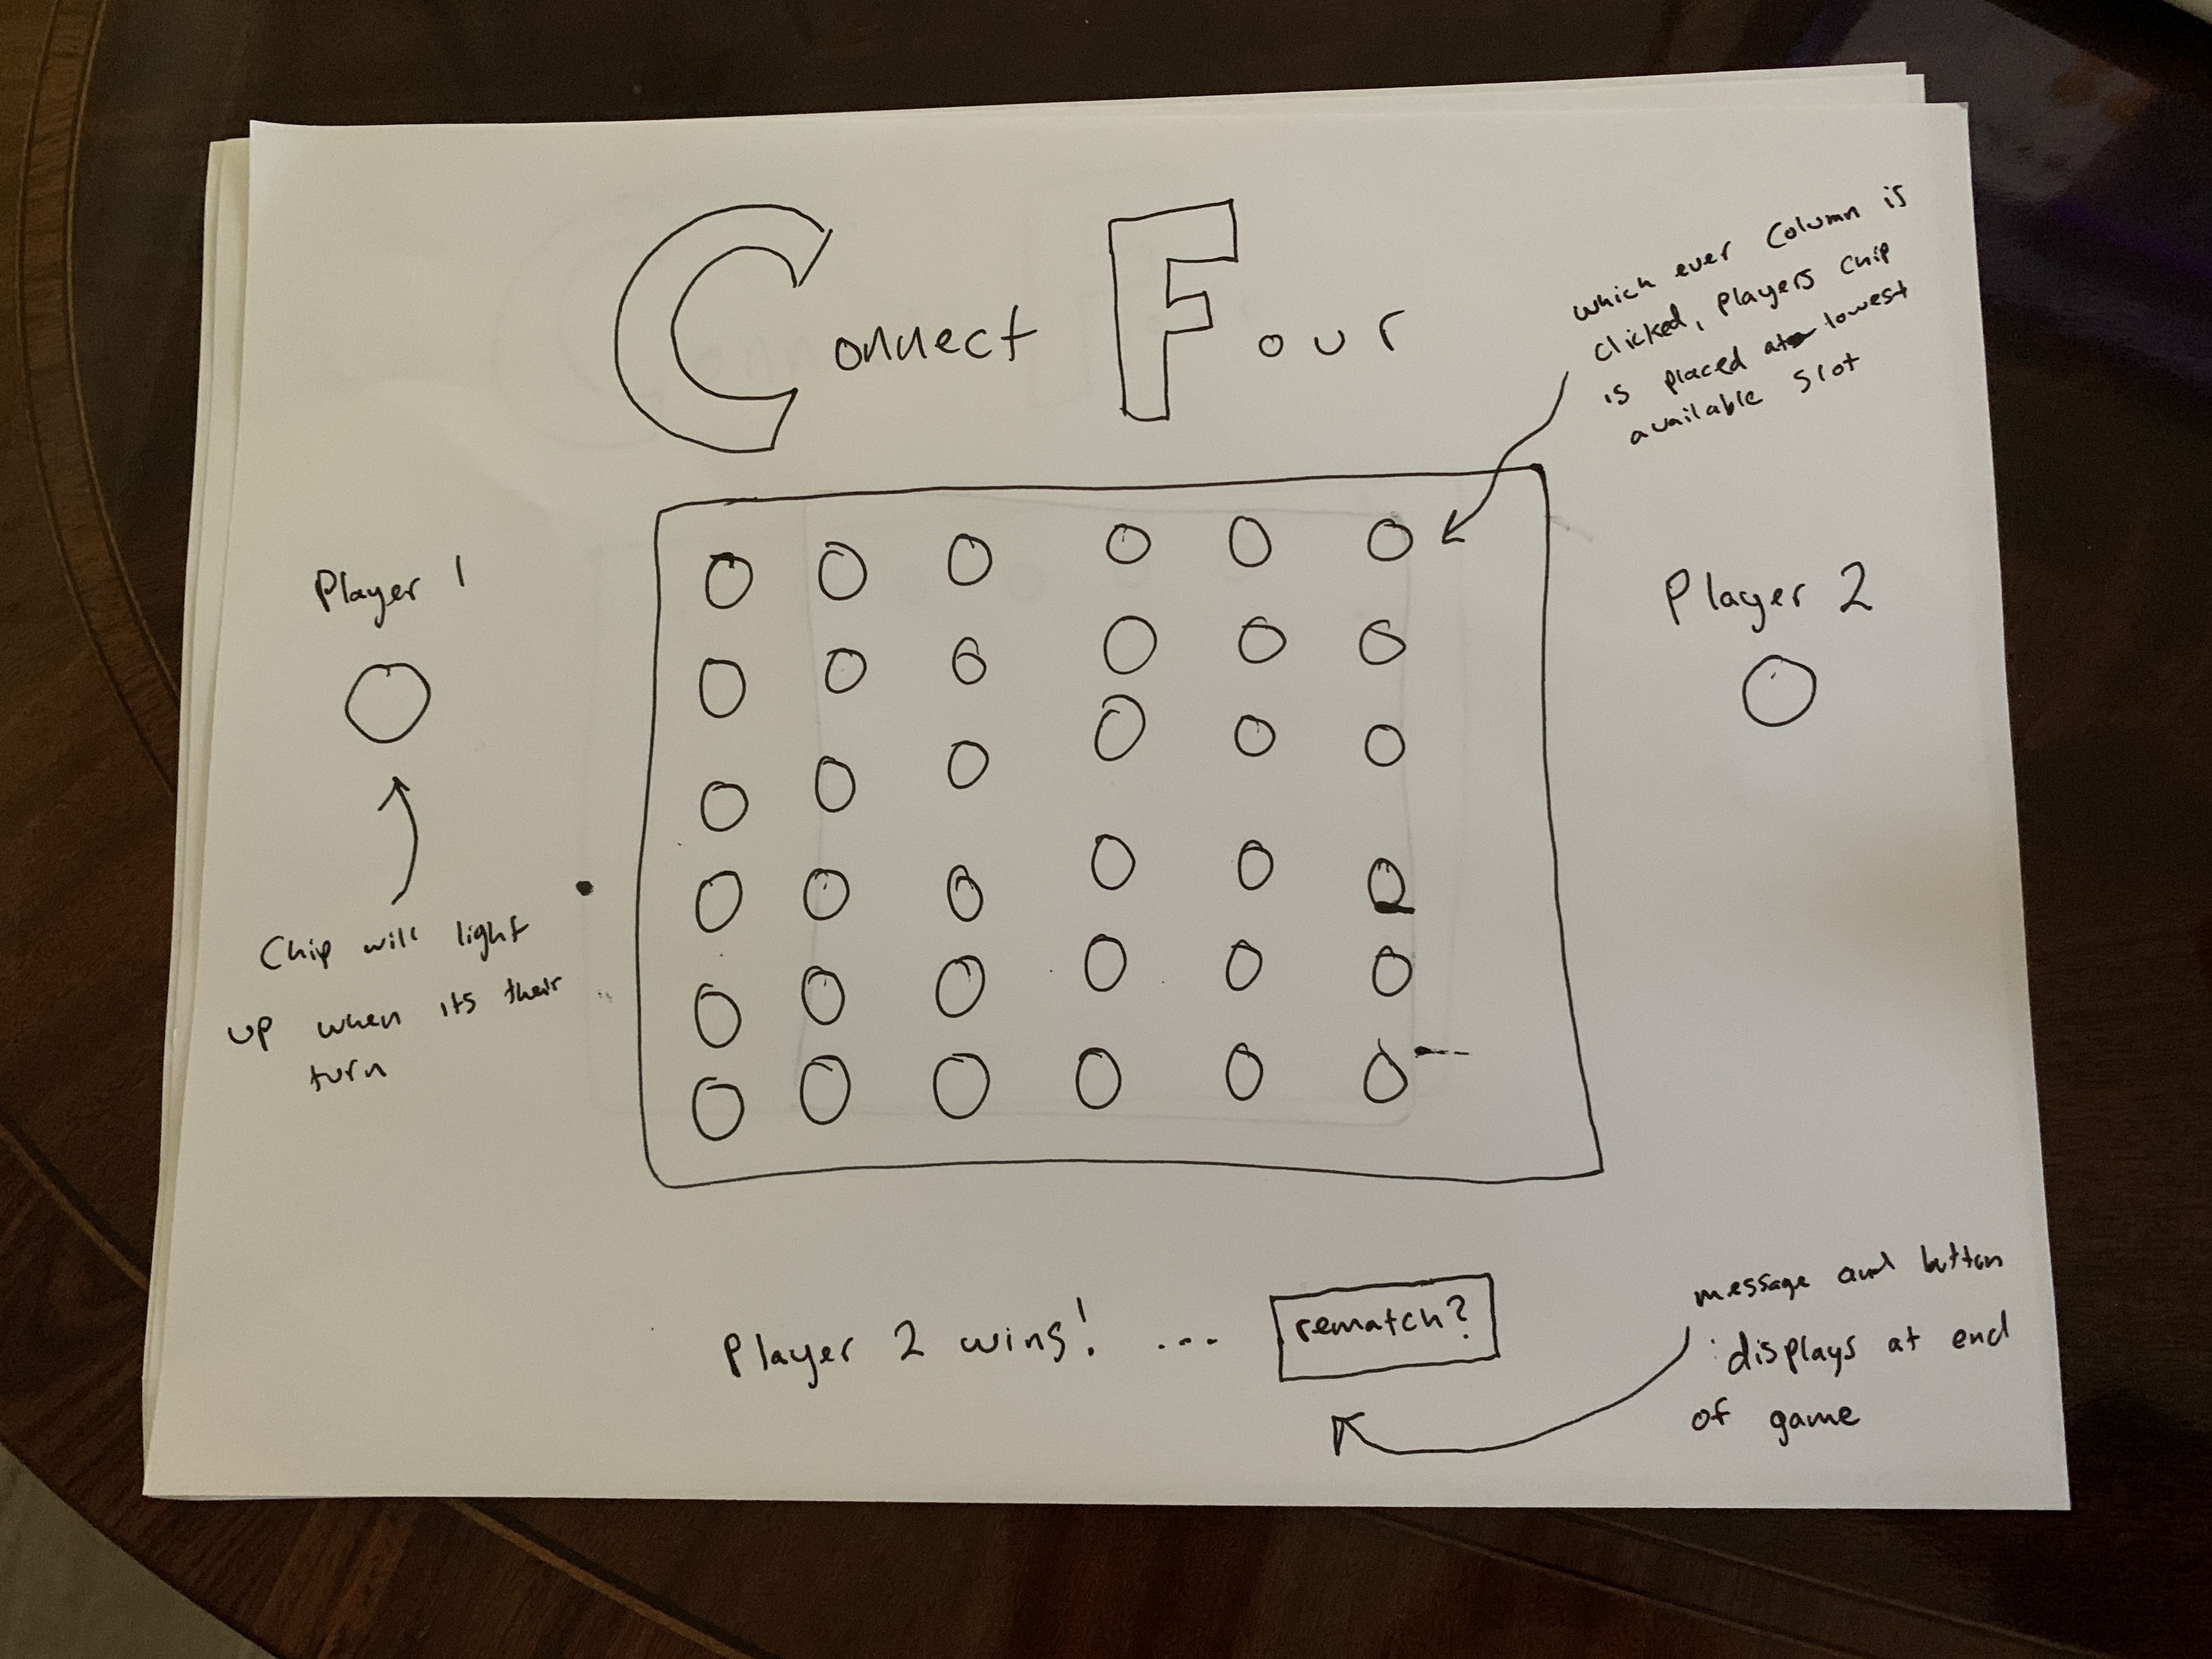 Connect Four
which ever column is
clicked, players chip
is placed at lowest
available slot
Player 1
Player 2
Chip will light
up when its their
turn
Player 2 wins! ... rematch?
message and button
displays at end
of game